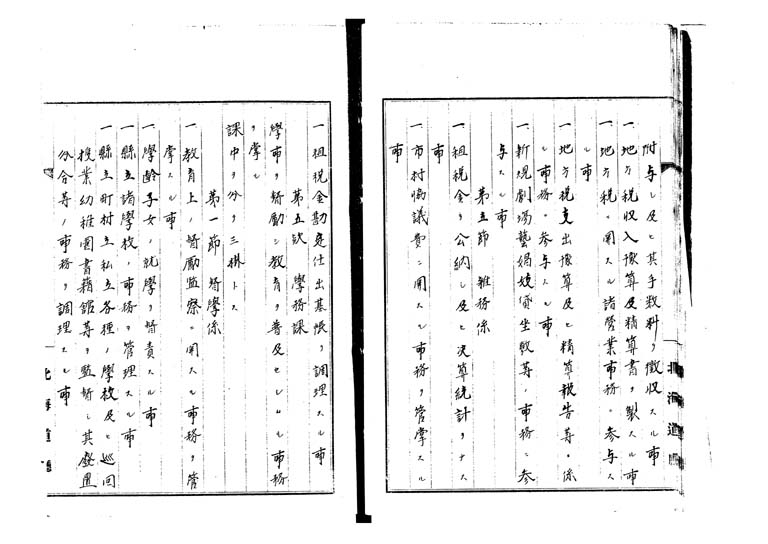 附与シ及ヒ其手数料ヲ徴収スル事
一地方税収入豫算及精算書ヲ製スル事
一地方税ニ関スル諸営業事務ニ参与ス
ル事
一地方税支出豫算及ヒ精算報告等ニ係
ル事務ニ参与スル事
一新規劇場藝娼妓貸坐敷等ノ事務ニ参
与スル事
第五節 雑務係
一租税金ヲ公納シ及ヒ決算統計ヲナス
事
一市村協議費ニ関スル事務ヲ管掌スル
事
北海道
一租税金勘定仕出基帳ヲ調理スル事
第五欵 學務課
學事ヲ督勵シ教育ヲ普及セシムル事務
ヲ掌ル
課中ヲ分ヲ三掛トス
第一節 督學係
一教育上ノ督勵監察ニ関スル事務ヲ管
掌スル事
一學齢子女ノ就學ヲ督責スル事
一縣立諸學校ノ事務ヲ管理スル事
一縣立町村立私立各種ノ學校及ヒ巡回
授業幼稚園書籍館等ヲ監督シ其廢置
分合等ノ事務ヲ調理スル事
北海道